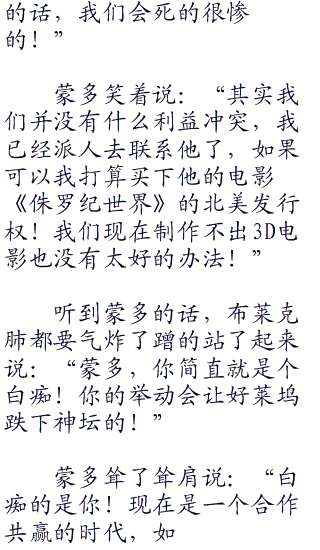 的话，我们会死的很惨
的！”
蒙多笑着说：“其实我
们并没有什么利益冲突，我
已经派人去联系他了，如果
可以我打算买下他的电影
《侏罗纪世界》的北美发行
权！我们现在制作不出3D电
影也没有太好的办法！”
听到蒙多的话，布莱克
肺都要气炸了蹭的站了起来
说：“蒙多，你简直就是个
白痴！你的举动会让好莱坞
跌下神坛的！”
蒙多耸了耸肩说：“白
痴的是你！现在是一个合作
共赢的时代，如